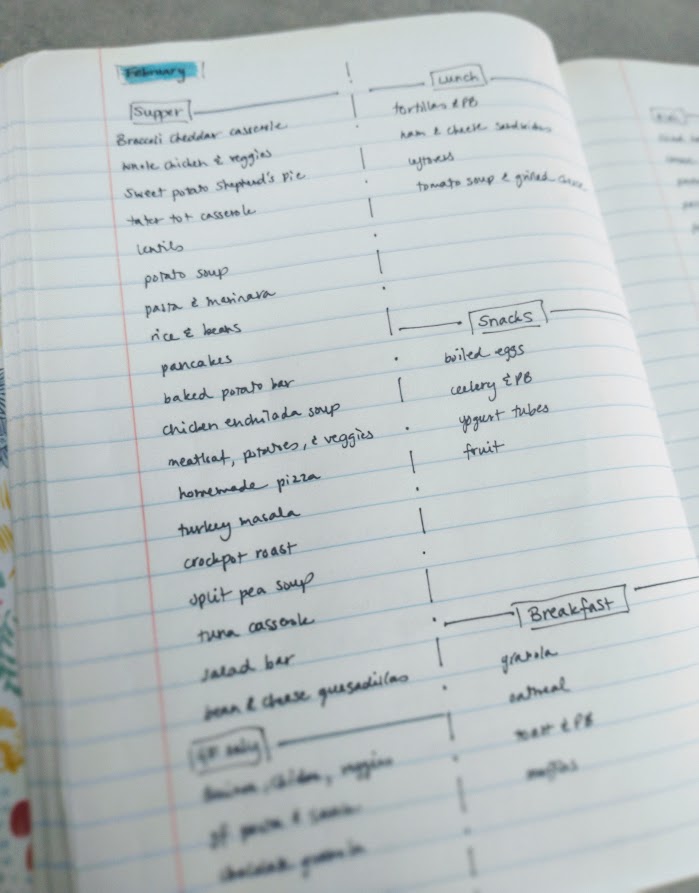 February
Supper
Broccoli cheddar casserole
whole chicken & veggies
Sweet potato Shepherd's Pie
tater tot casserole
lentils
potato soup
pasta & marinara
rice & beans
pancakes
baked potato bar
chicken enchilada soup
meatloaf, potatoes, & veggies
homemade pizza
turkey masala
crockpot roast
split pea soup
tuna casserole
salad bar
bean & cheese quesadillas
GF only
quinoa, chicken, veggies
gf pasta & sauce
chocolate granola
Lunch
tortillas & PB
ham & cheese sandwiches
leftovers
tomato soup & grilled cheese
Snacks
boiled eggs
celery & PB
yogurt tubes
fruit
Breakfast
granola
oatmeal
toast & PB
muffins